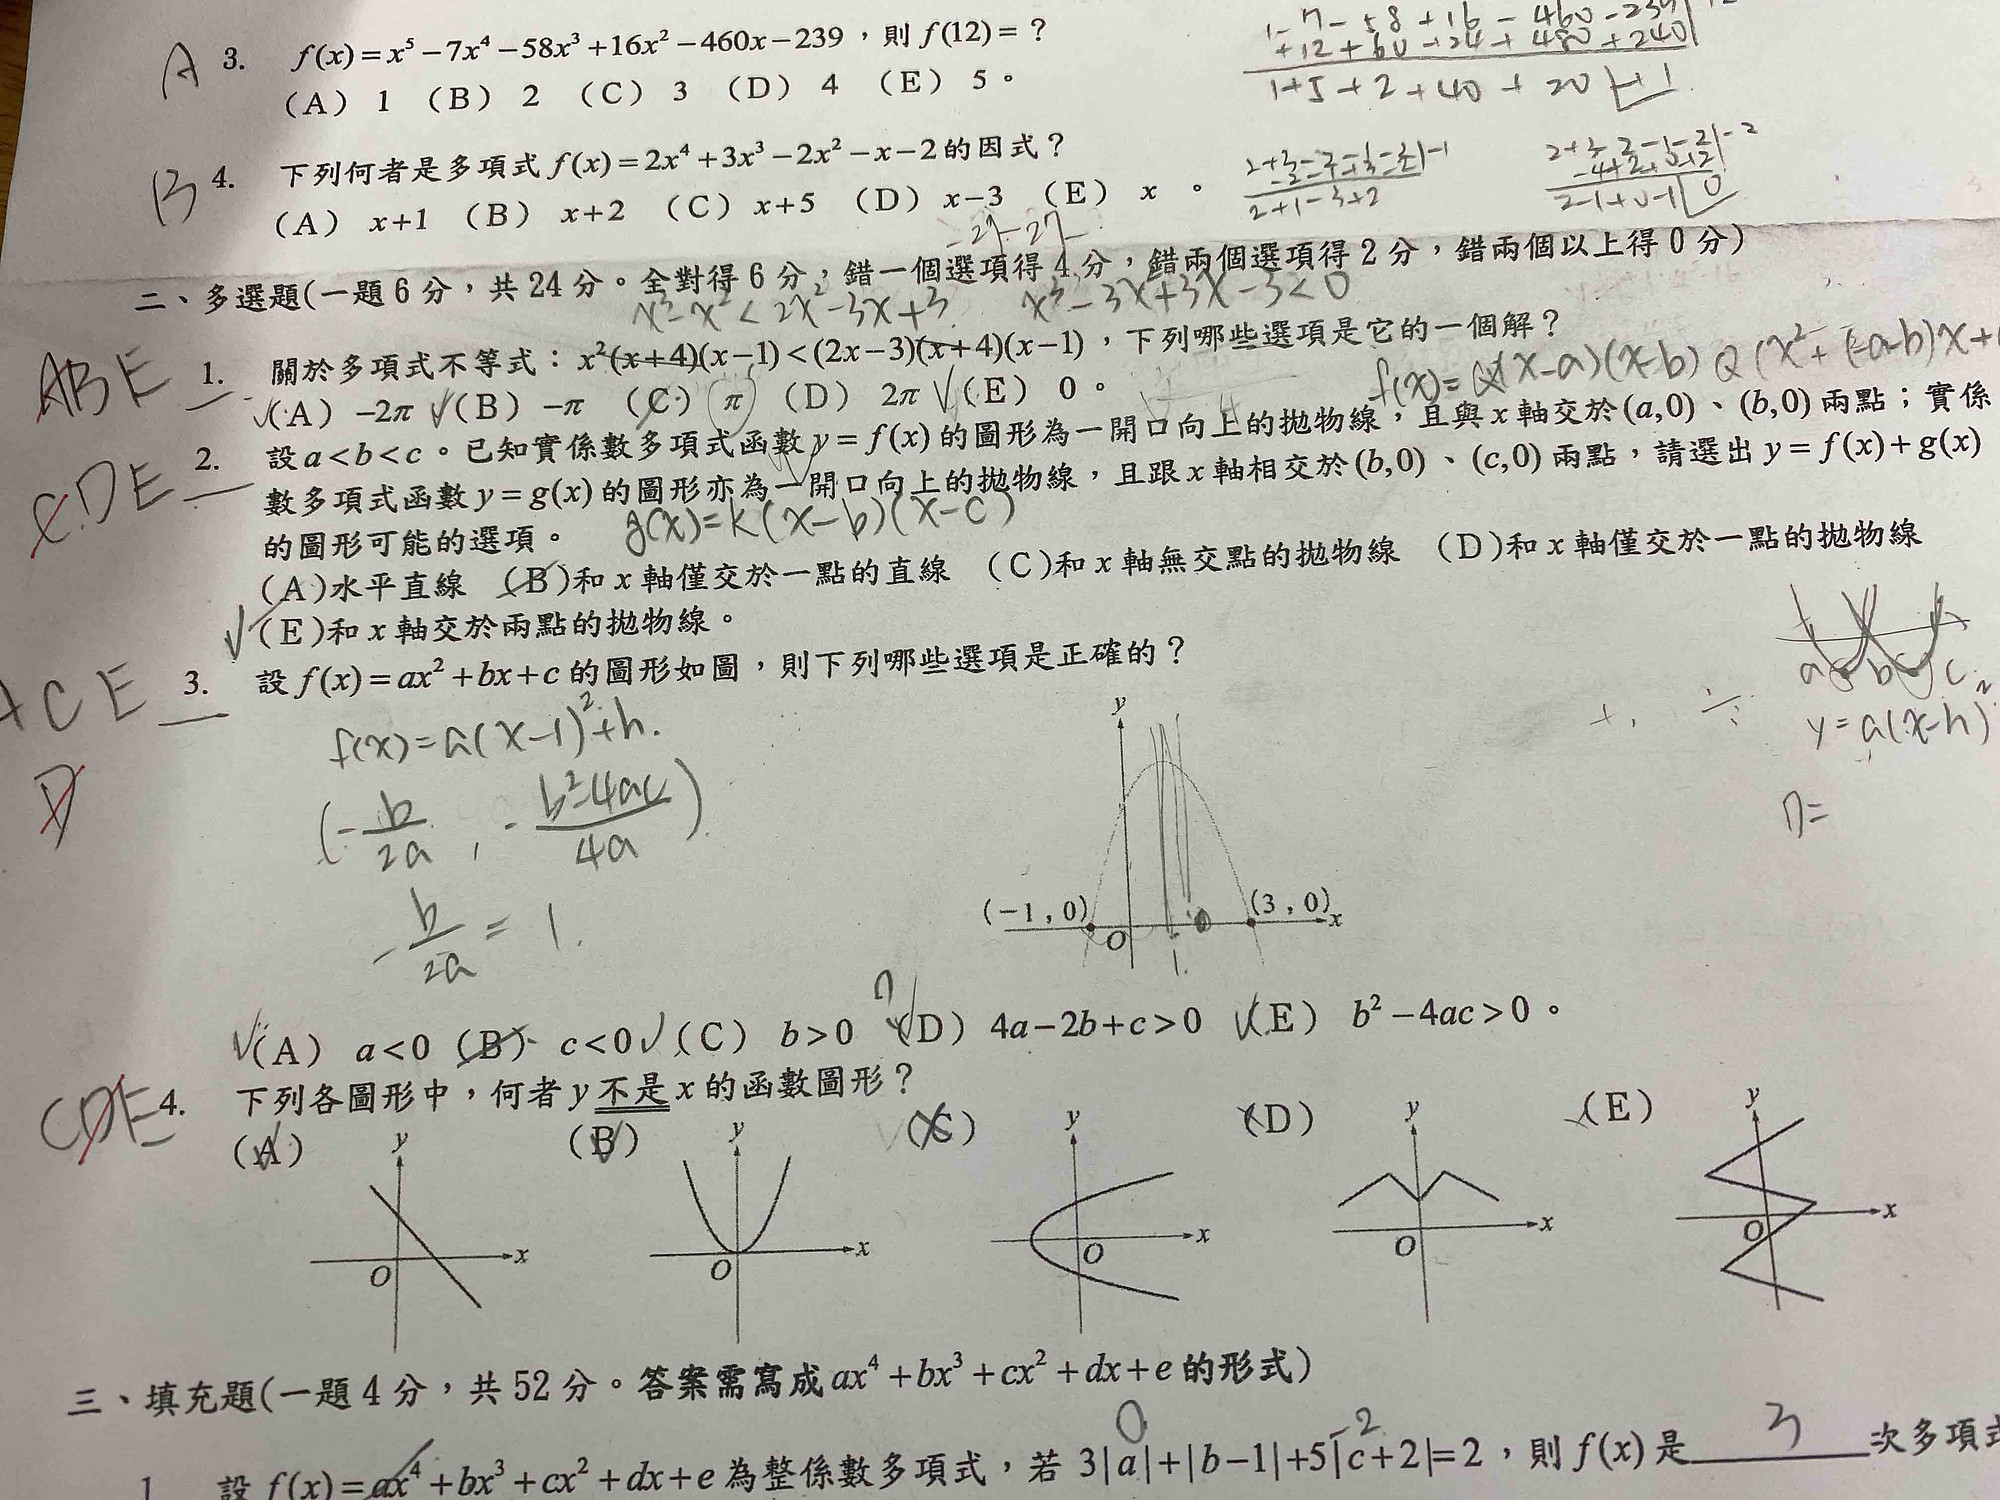 A 3. f(x)=x⁵−7x⁴−58x³+16x²−460x−239，則 f(12)=？
（A） 1 （B） 2 （C） 3 （D） 4 （E） 5。
1-7-58+16-460-239
+12+60+24+480+240
1+5+2+40+20 +1
B 4. 下列何者是多項式 f(x)=2x⁴+3x³−2x²−x−2的因式？
（A） x+1 （B） x+2 （C） x+5 （D） x−3 （E） x 。
2+1-3+2
2-1+0-1 0
-27-27
二、多選題(一題6分，共24分。全對得6分，錯一個選項得4分，錯兩個選項得2分，錯兩個以上得0分)
x³-x²<2x²-3x+3 x³-3x²+3x-3<0
ABE 1. 關於多項式不等式：x²(x+4)(x−1)<(2x−3)(x+4)(x−1)，下列哪些選項是它的一個解？
（A） −2π （B） −π （C） π （D） 2π （E） 0。
f(x)=a(x-a)(x-b)
CDE 2. 設a<b<c。已知實係數多項式函數y=f(x)的圖形為一開口向上的拋物線，且與x軸交於(a,0)、(b,0)兩點；實係
數多項式函數y=g(x)的圖形亦為一開口向上的拋物線，且跟x軸相交於(b,0)、(c,0)兩點，請選出y=f(x)+g(x)
的圖形可能的選項。
g(x)=k(x-b)(x-c)
(A)水平直線 (B)和x軸僅交於一點的直線 (C)和x軸無交點的拋物線 (D)和x軸僅交於一點的拋物線
(E)和x軸交於兩點的拋物線。
a b c
y=a(x-h)
ACE 3. 設f(x)=ax²+bx+c的圖形如圖，則下列哪些選項是正確的？
D
f(x)=a(x-1)²+h.
(-b/2a , -b²-4ac/4a)
-b/2a = 1.
y
(−1,0) O (3,0) x
1.
（A） a<0 （B） c<0 （C） b>0 （D） 4a−2b+c>0 （E） b²−4ac>0。
CDE 4. 下列各圖形中，何者y不是x的函數圖形？
（A） （B） （C） （D） （E）
y y y y y
x x x x x
O O O O O
三、填充題(一題4分，共52分。答案需寫成ax⁴+bx³+cx²+dx+e的形式)
0 -2
1. 設f(x)=ax⁴+bx³+cx²+dx+e為整係數多項式，若3|a|+|b−1|+5|c+2|=2，則f(x)是 3 次多項式